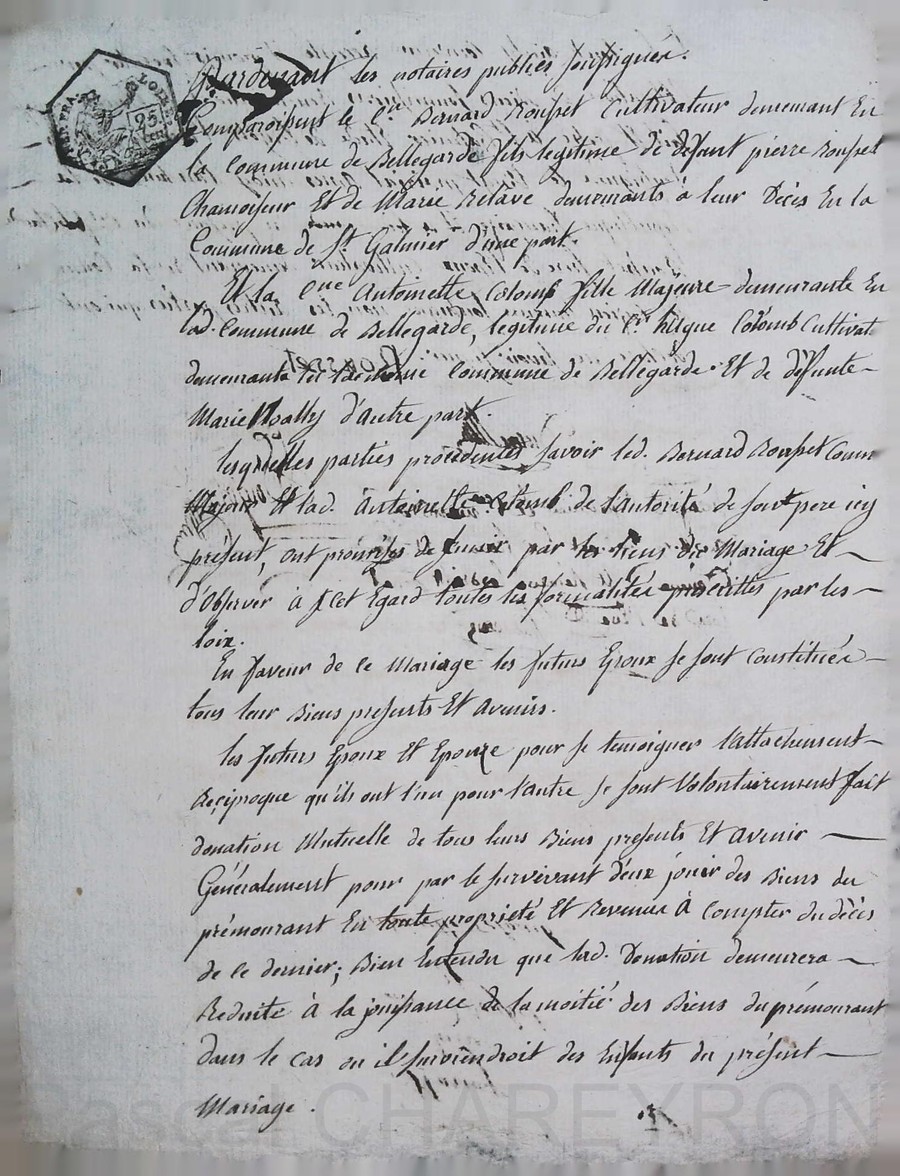 Pardevant les notaires publics soussignés.
Comparoissent le C.en Bernard Rousset Cultivateur demeurant En
la Commune de Bellegarde fils legitime de defunt pierre Rousset
Chamoiseur Et de Marie Relave demeurants à leur Décès En la
Commune de S.t Galmier d'une part.
Et la C.nne Antoinette Colomb fille Majeure demeurante En
lad. Commune de Bellegarde, legitime du C.n hugue Colomb Cultivat
demeurants commune de Bellegarde Et de défunte
Marie d'autre part.
lesquelles parties procèdentes savoir led. Bernard Rousset Comme
Majeur Et lad. Antoinette Colomb de l'autorité de son pere icy
présent, ont promises de s'unir par les liens du Mariage Et
d'Observer a Cet Egard toutes les formalités prescrittes par les
loix.
En faveur de ce Mariage les futurs Epoux se sont Constitués
tous leur Biens presents Et avenirs.
les futurs Epoux Et Epouze pour se temoigner l'attachement
Reciproque qu'ils ont l'un pour l'autre se sont Volontairement fait
donation Mutuelle de tous leurs Biens presents Et avenir
Généralement pour par le survivant d'eux jouir des Biens du
prémourant En toute propriété Et Revenus À Compter du décès
de ce dernier; Bien Entendu que lad. Donation demeurera
Reduite à la jouissance de la moitié des Biens du prémourant
dans le cas ou il surviendroit des Enfants du présent
Mariage.
Pascal CHAREYRON